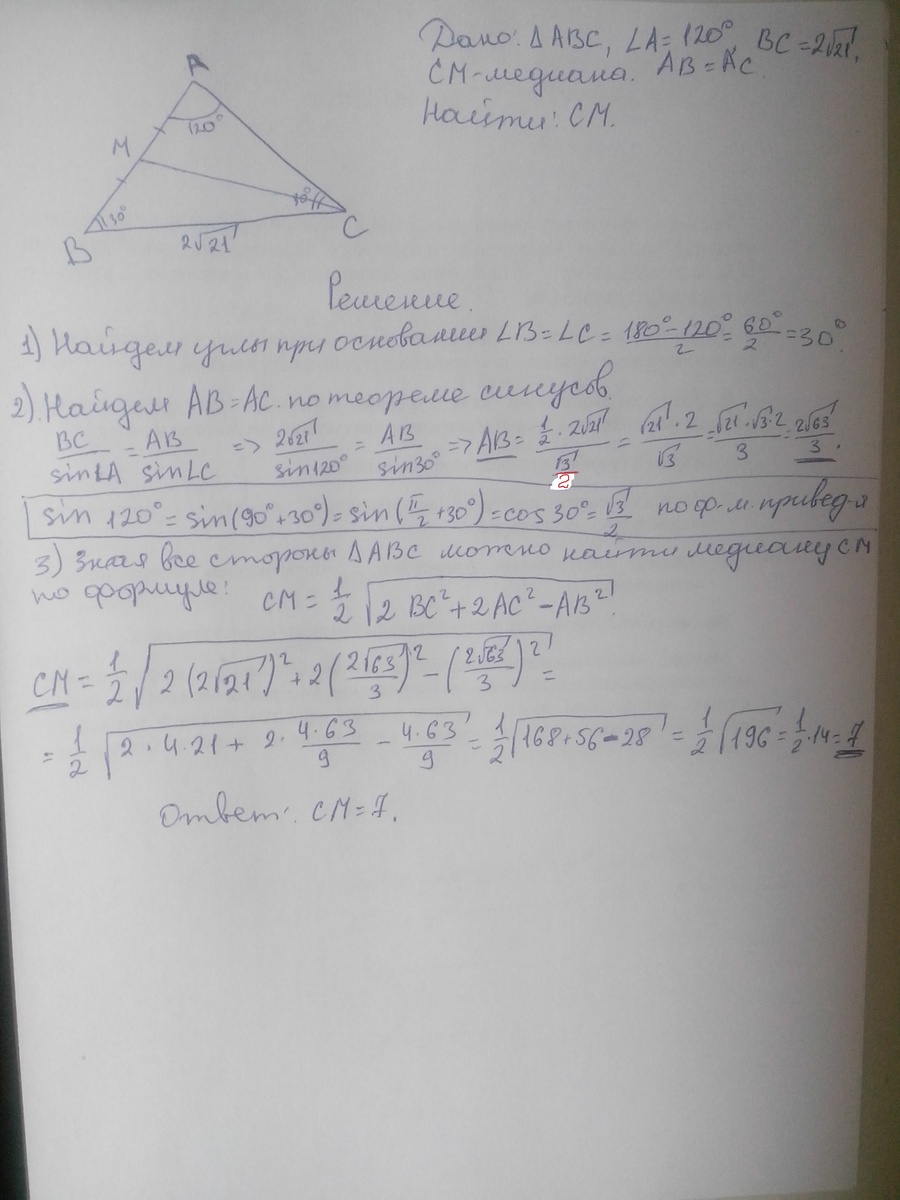 Дано: ΔABC, ∠A = 120°, BC = 2√21,
CM-медиана. AB = AC.
Найти: CM.
A
120°
M
30°
30°
B
2√21
C
Решение.
1) Найдем углы при основании ∠B = ∠C = (180° − 120°)/2 = 60°/2 = 30°.
2). Найдем AB = AC. по теореме синусов.
BC/sin∠A = AB/sin∠C => 2√21/sin120° = AB/sin30° => AB = (1/2 · 2√21)/(√3/2) = (√21 · 2)/√3 = (√21 · √3 · 2)/3 = 2√63/3.
sin 120° = sin(90° + 30°) = sin(π/2 + 30°) = cos 30° = √3/2 по ф-м. привед-я
3) Зная все стороны ΔABC можно найти медиану CM
по формуле: CM = 1/2 √(2 BC² + 2AC² − AB²)
CM = 1/2 √(2 (2√21)² + 2 (2√63/3)² − (2√63/3)²) =
= 1/2 √(2 · 4 · 21 + 2 · 4·63/9 − 4·63/9) = 1/2 √(168 + 56 − 28) = 1/2 √196 = 1/2 · 14 = 7
Ответ: CM = 7.